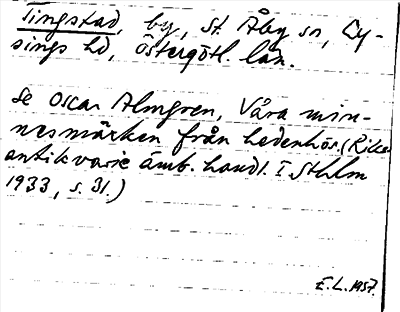 Tingstad, by, St. Åby sn, Ly-
sings hd, Östergötl. län.
Se Oscar Almgren, Våra min-
nesmärken från hedenhös. (Riks-
antikvarie ämb. handl. I. Sthlm
1933, s. 31.)
E.L. 1957.